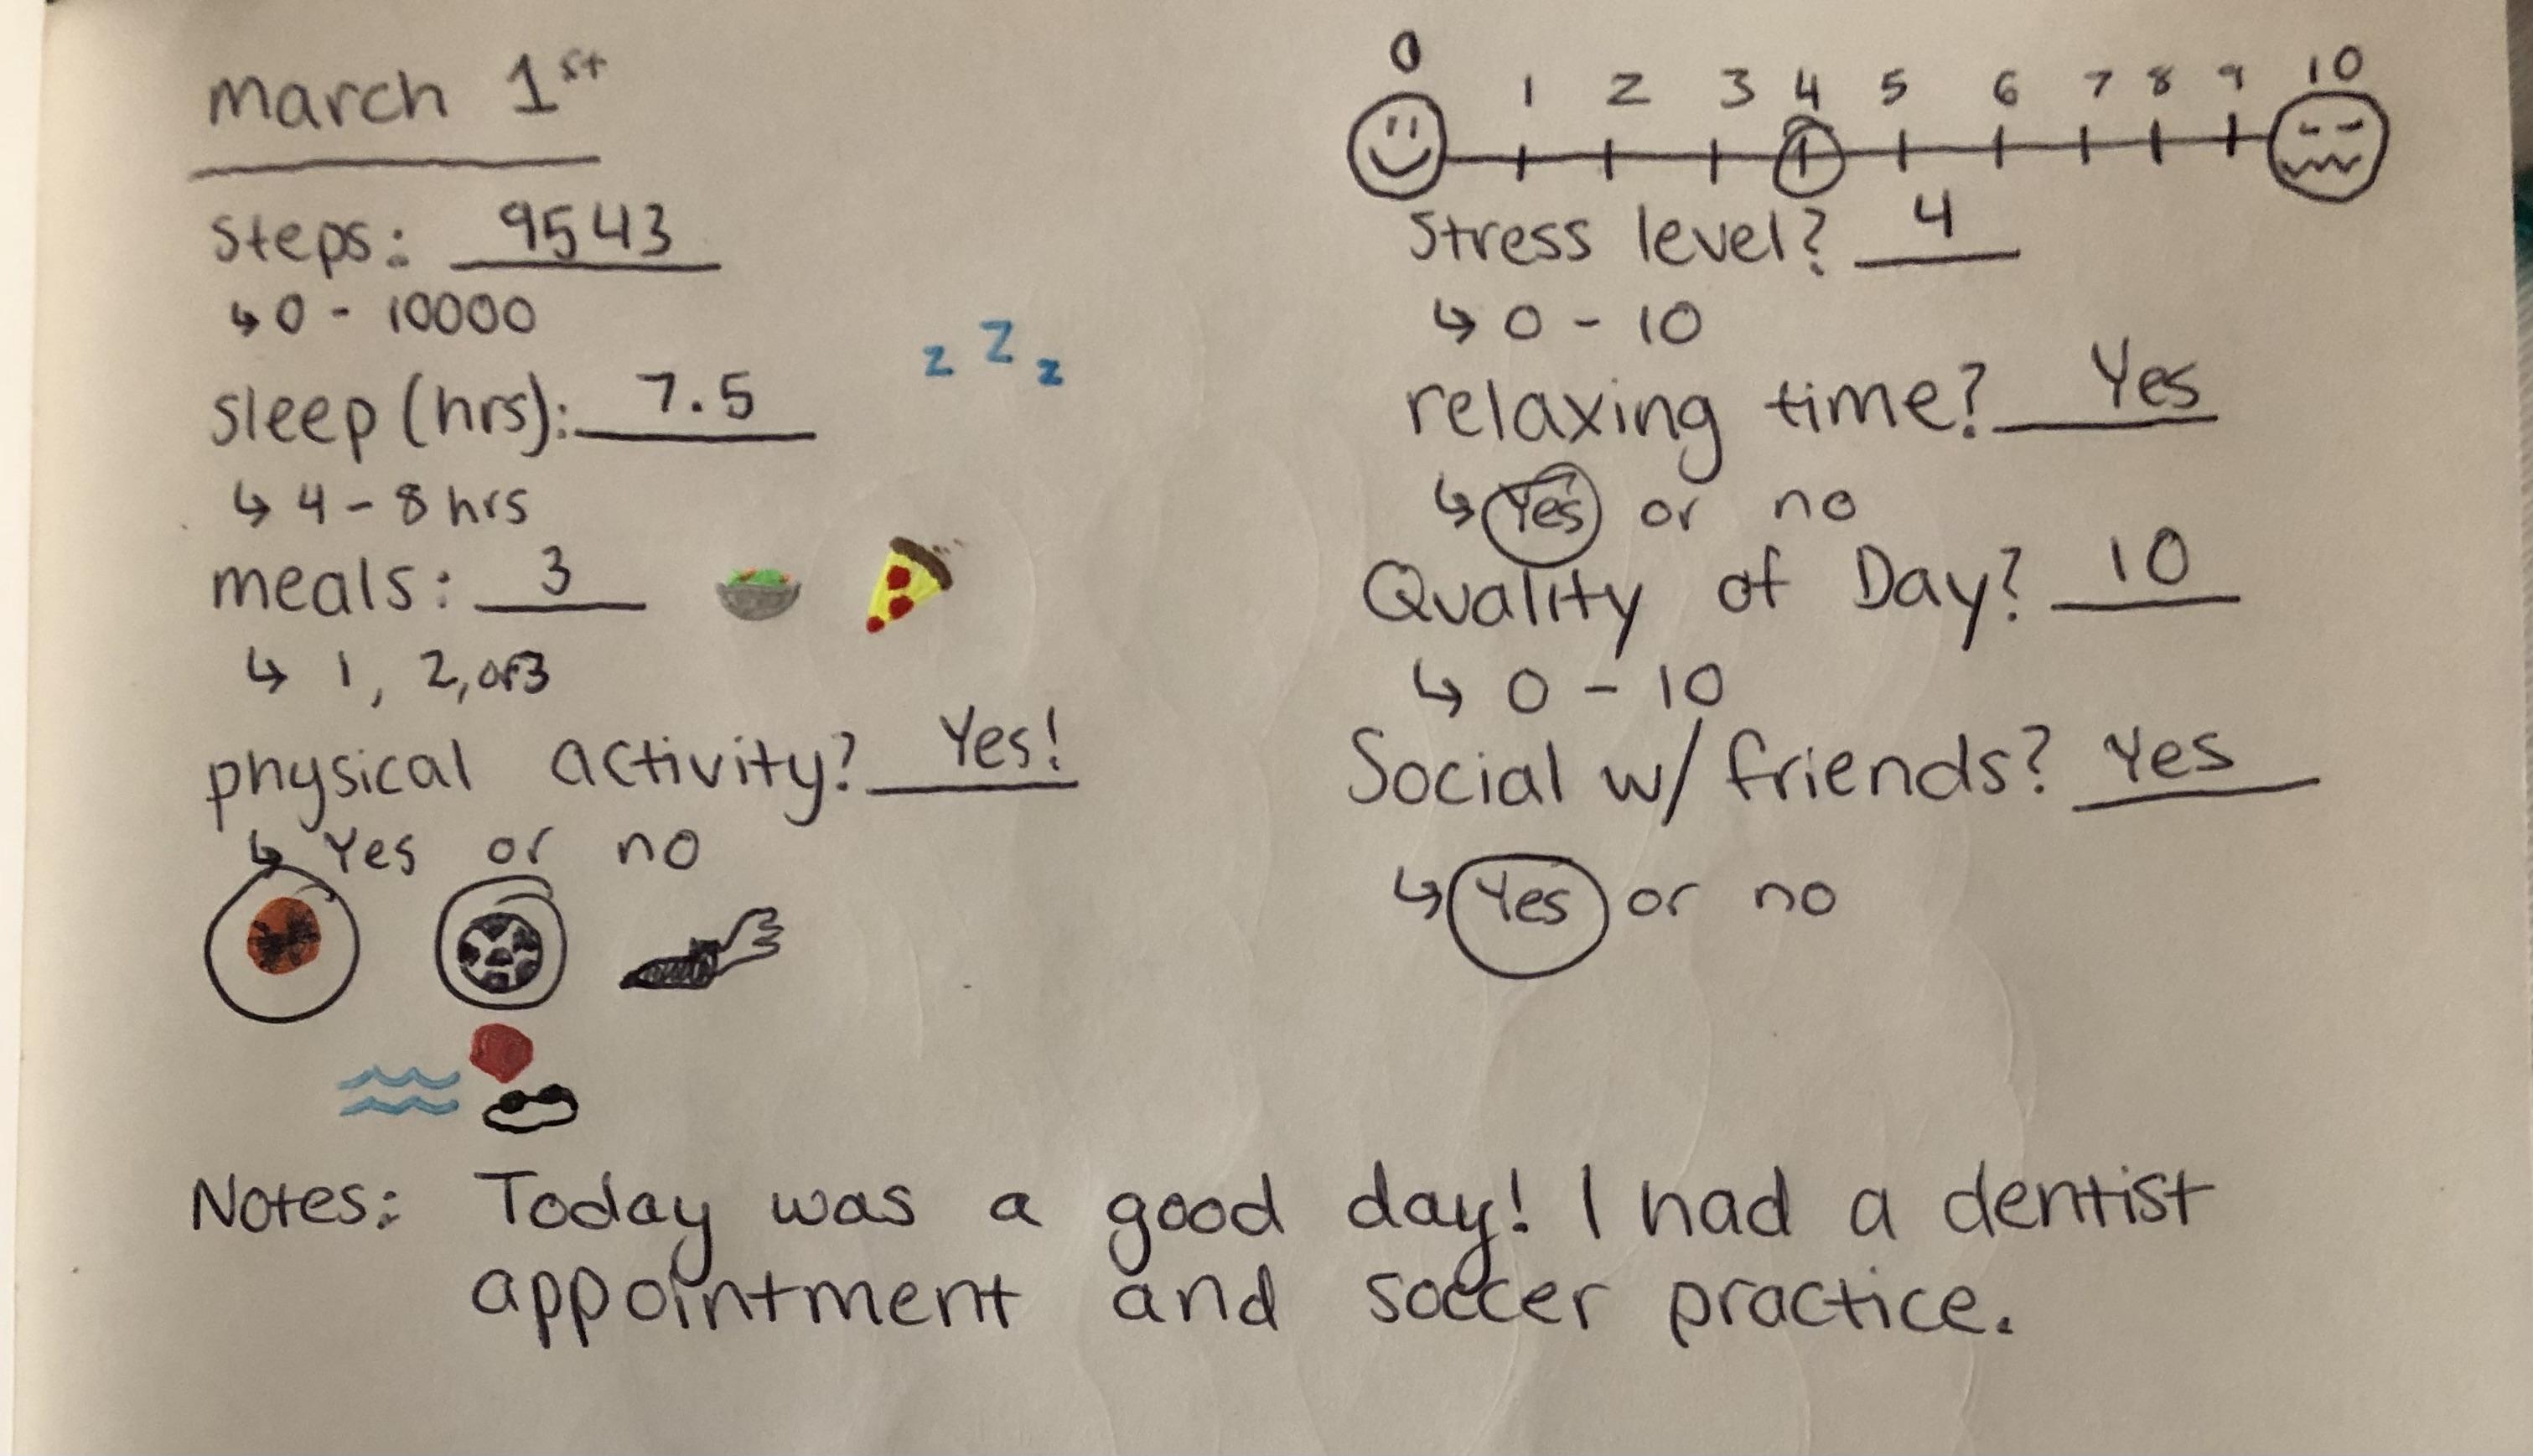 March 1st
Steps: 9543
↳ 0 - 10000
Sleep (hrs): 7.5
↳ 4 - 8 hrs
z Z z
meals: 3
↳ 1, 2, or 3
physical activity? Yes!
↳ Yes or no
0 1 2 3 4 5 6 7 8 9 10
Stress level? 4
↳ 0 - 10
relaxing time? Yes
↳ Yes or no
Quality of Day? 10
↳ 0 - 10
Social w/ friends? Yes
↳ Yes or no
Notes: Today was a good day! I had a dentist
appointment and soccer practice.